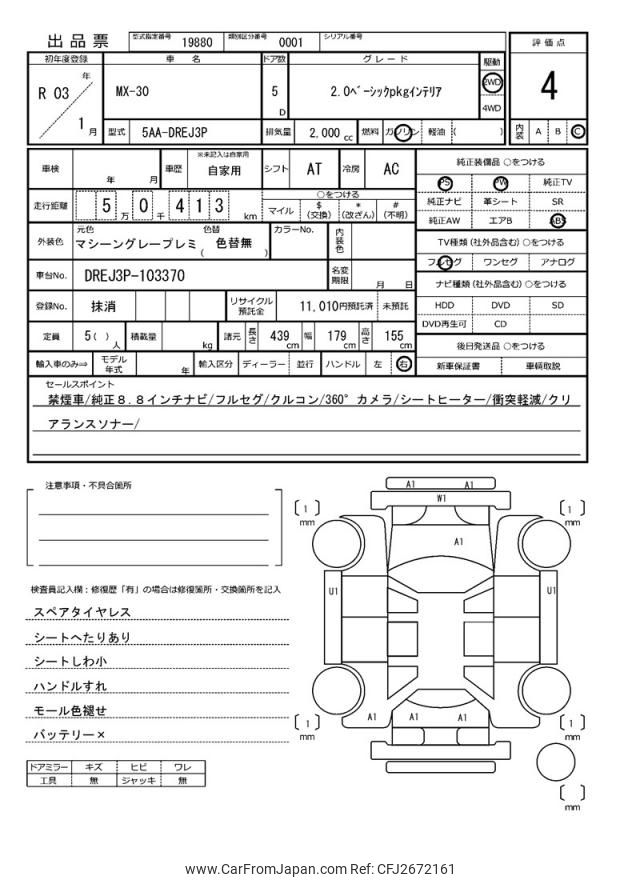 出品票
型式指定番号 19880 類別区分番号 0001 シリアル番号
評価点
4
内装 A B C
初年度登録 車名 ドア数 グレード 駆動
R 03 年 1 月
MX-30
5 D
2.0ﾍﾞｰｼｯｸpkgｲﾝﾃﾘｱ
2WD
4WD
型式 5AA-DREJ3P 排気量 2,000 cc 燃料 ガソリン 軽油 ( )
車検 年 月 車歴 ※未記入は自家用 自家用 シフト AT 冷房 AC
走行距離 5 万 0 千 4 1 3 km
○をつける
マイル $ (交換) * (改ざん) # (不明)
外装色 元色 マシーングレープレミ 色替 ( 色替無 ) カラーNo. 内装色
車台No. DREJ3P-103370 名変期限 月 日
登録No. 抹消 リサイクル預託金 11,010円預託済 未預託
定員 5( )人 積載量 kg 諸元 長さ 439 cm 幅 179 cm 高さ 155 cm
輸入車のみ⇒ モデル年式 年 輸入区分 ディーラー 並行 ハンドル 左 右
純正装備品 ○をつける
PS PW 純正TV
純正ナビ 革シート SR
純正AW エアB ABS
TV種類(社外品含む)○をつける
フルセグ ワンセグ アナログ
ナビ種類(社外品含む)○をつける
HDD DVD SD
DVD再生可 CD
後日発送品 ○をつける
新車保証書 車輌取説
セールスポイント
禁煙車/純正8.8インチナビ/フルセグ/クルコン/360°カメラ/シートヒーター/衝突軽減/クリ
アランスソナー/
注意事項・不具合箇所
検査員記入欄:修復歴「有」の場合は修復箇所・交換箇所を記入
スペアタイヤレス
シートへたりあり
シートしわ小
ハンドルすれ
モール色褪せ
バッテリー×
ドアミラー キズ ヒビ ワレ
工具 無 ジャッキ 無
A1 A1
W1
[ 1 ] mm [ 1 ] mm
A1
U1 U1
A1 A1 A1 A1
[ 1 ] mm [ 1 ] mm
[ ] mm
www.CarFromJapan.com Ref: CFJ2672161